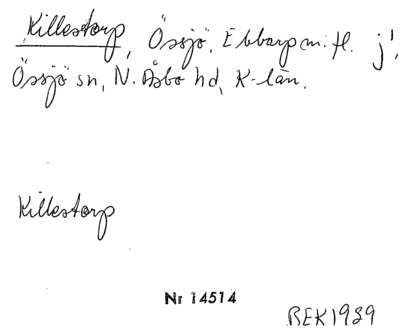 Killestorp, Össjö, Ebbarp m. fl. j!,
Össjö sn, N. Åsbo hd, K-län.
Killestorp
Nr 14514
BEK 1939